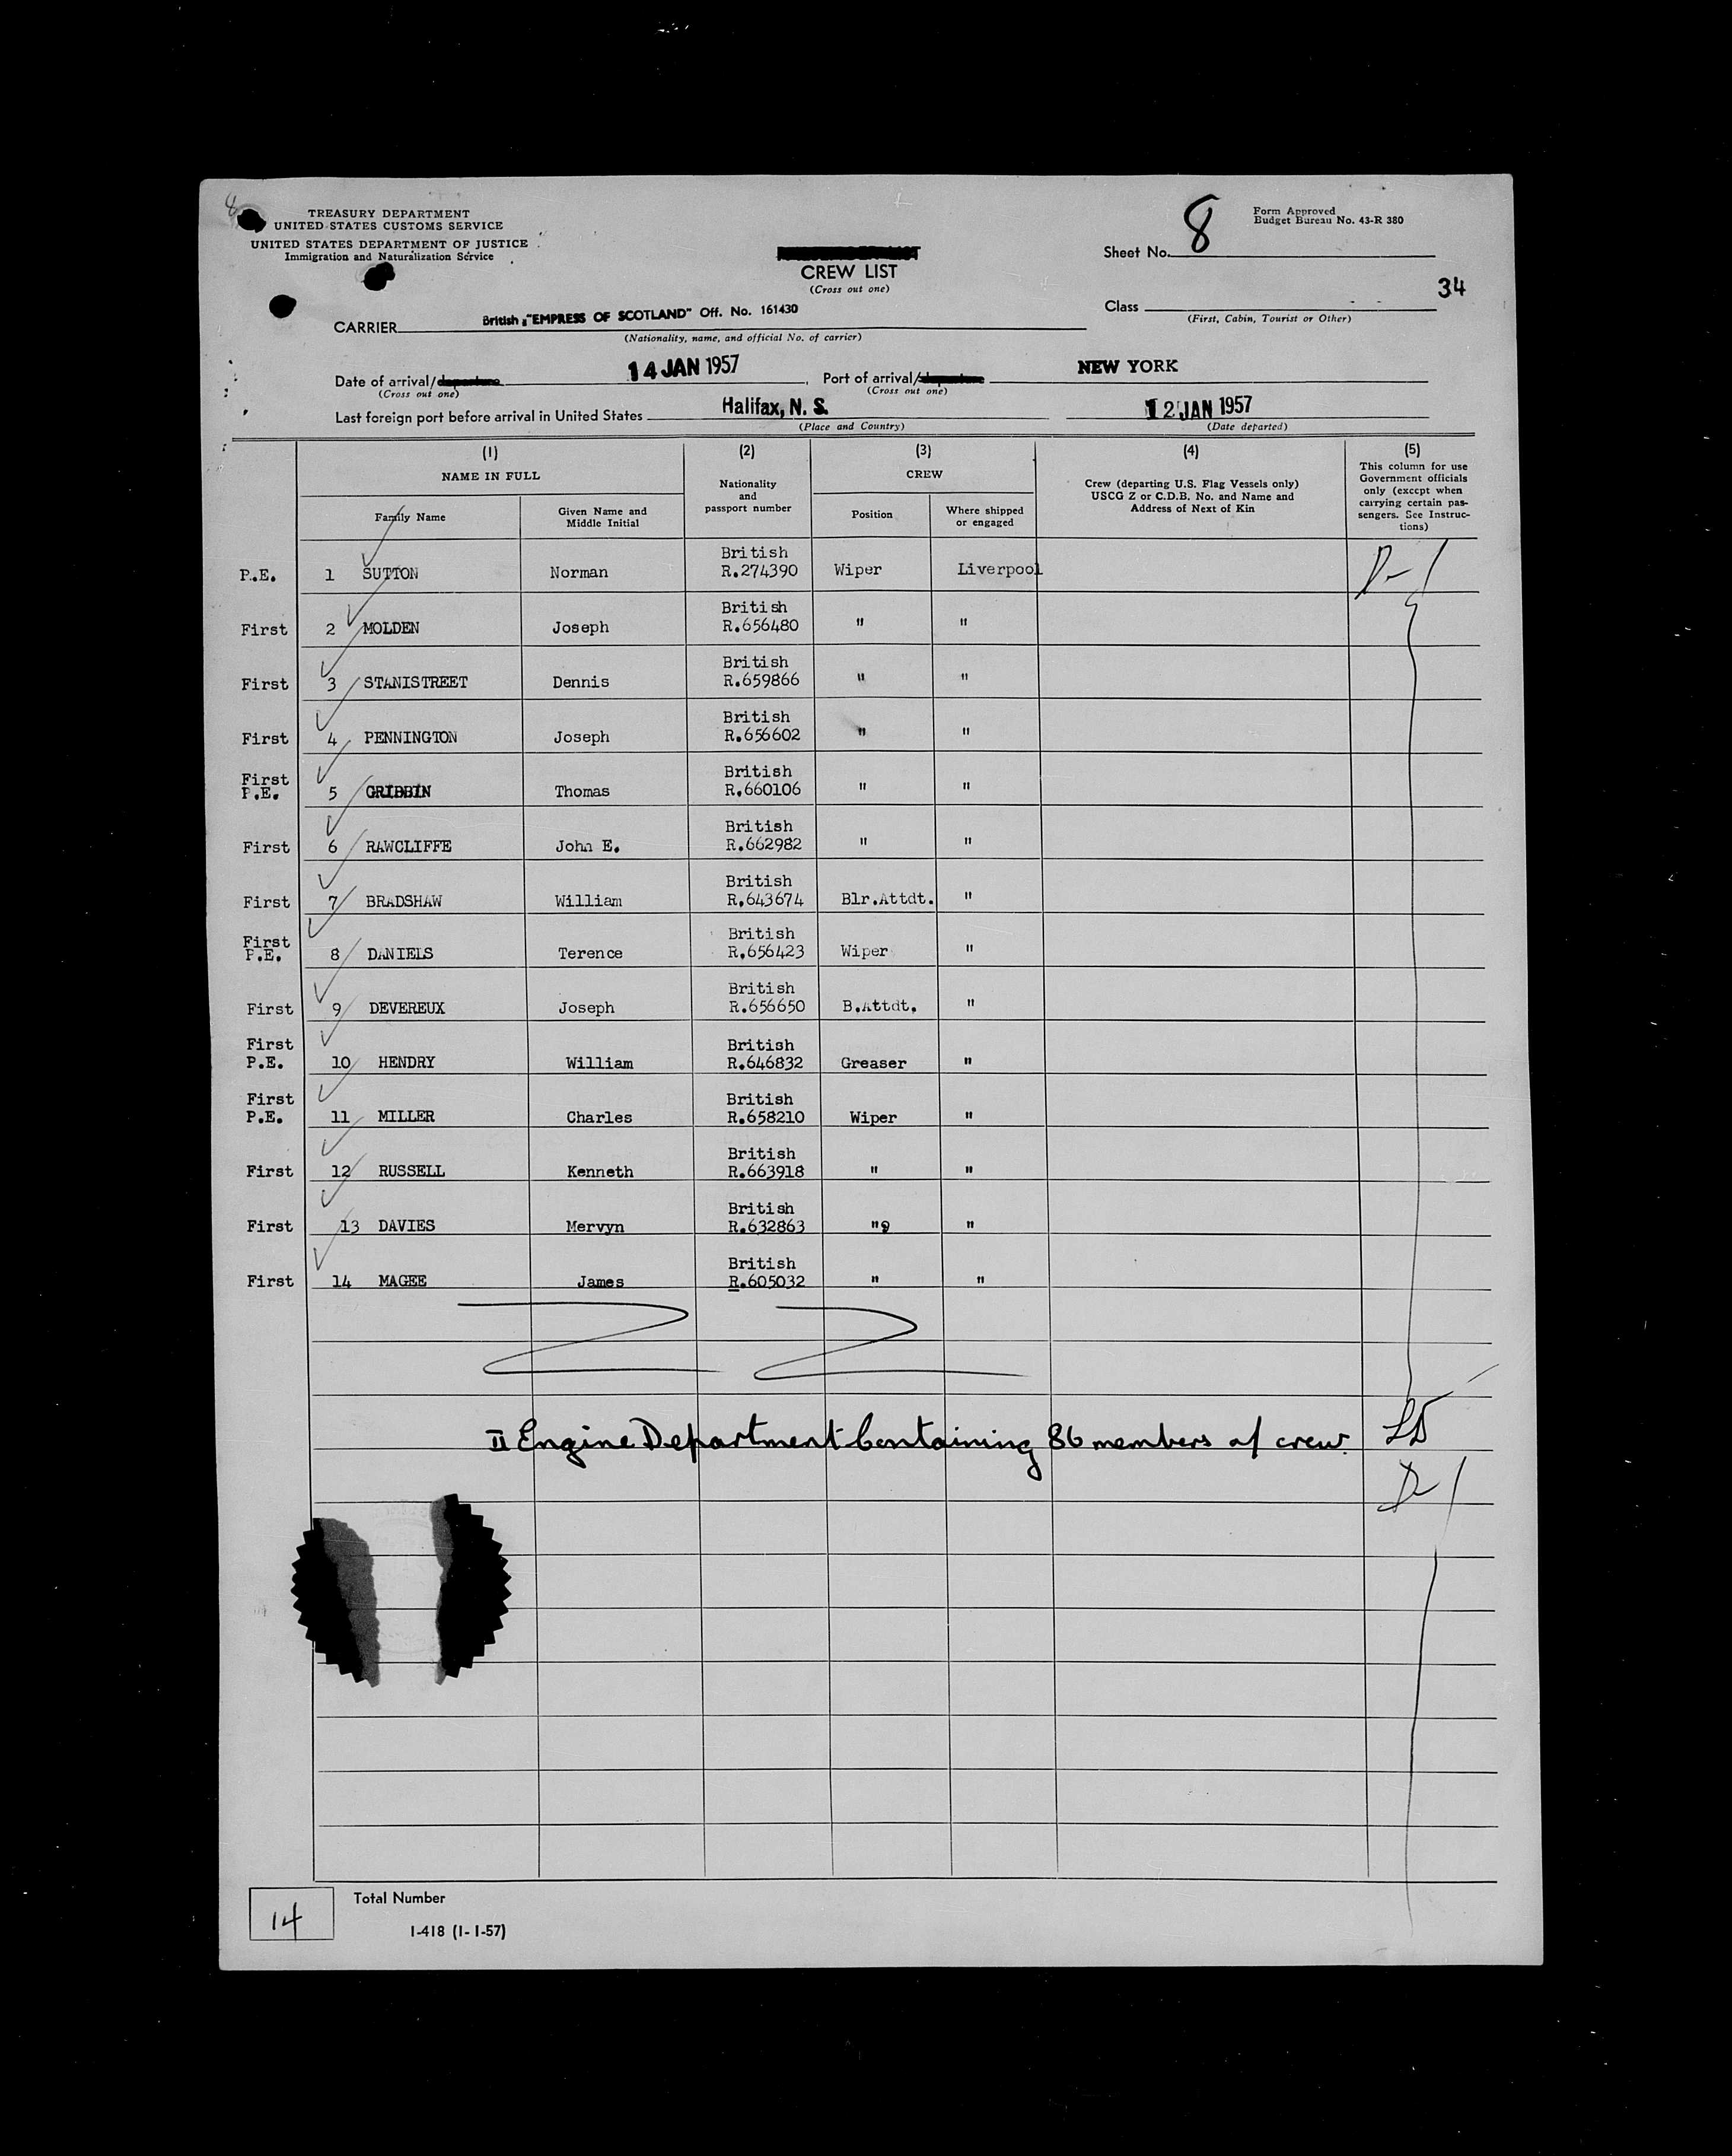 8
TREASURY DEPARTMENT
UNITED STATES CUSTOMS SERVICE
UNITED STATES DEPARTMENT OF JUSTICE
Immigration and Naturalization Service
Form Approved
Budget Bureau No. 43-R 380
Sheet No. 8
CREW LIST
(Cross out one)
34
Class
(First, Cabin, Tourist or Other)
CARRIER British "EMPRESS OF SCOTLAND" Off. No. 161430
(Nationality, name, and official No. of carrier)
Date of arrival/departure 14 JAN 1957 , Port of arrival/departure NEW YORK
(Cross out one) (Cross out one)
Last foreign port before arrival in United States Halifax, N. S. 12 JAN 1957
(Place and Country) (Date departed)
(1) (2) (3) (4) (5)
NAME IN FULL
Family Name
Given Name and
Middle Initial
Nationality
and
passport number
CREW
Position
Where shipped
or engaged
Crew (departing U.S. Flag Vessels only)
USCG Z or C.D.B. No. and Name and
Address of Next of Kin
This column for use
Government officials
only (except when
carrying certain pas-
sengers. See Instruc-
tions)
British
P.E. 1 SUTTON Norman R.274390 Wiper Liverpool
British
First 2 MOLDEN Joseph R.656480 " "
British
First 3 STANISTREET Dennis R.659866 " "
British
First 4 PENNINGTON Joseph R.656602 " "
First British
P.E. 5 GRIBBIN Thomas R.660106 " "
British
First 6 RAWCLIFFE John E. R.662982 " "
British
First 7 BRADSHAW William R.643674 Blr.Attdt. "
First British
P.E. 8 DANIELS Terence R.656423 Wiper "
British
First 9 DEVEREUX Joseph R.656650 B.Attdt. "
First British
P.E. 10 HENDRY William R.646832 Greaser "
First British
P.E. 11 MILLER Charles R.658210 Wiper "
British
First 12 RUSSELL Kenneth R.663918 " "
British
First 13 DAVIES Mervyn R.632863 " "
British
First 14 MAGEE James R.605032 " "
II Engine Department Containing 86 members of crew.
14
Total Number
I-418 (1-1-57)